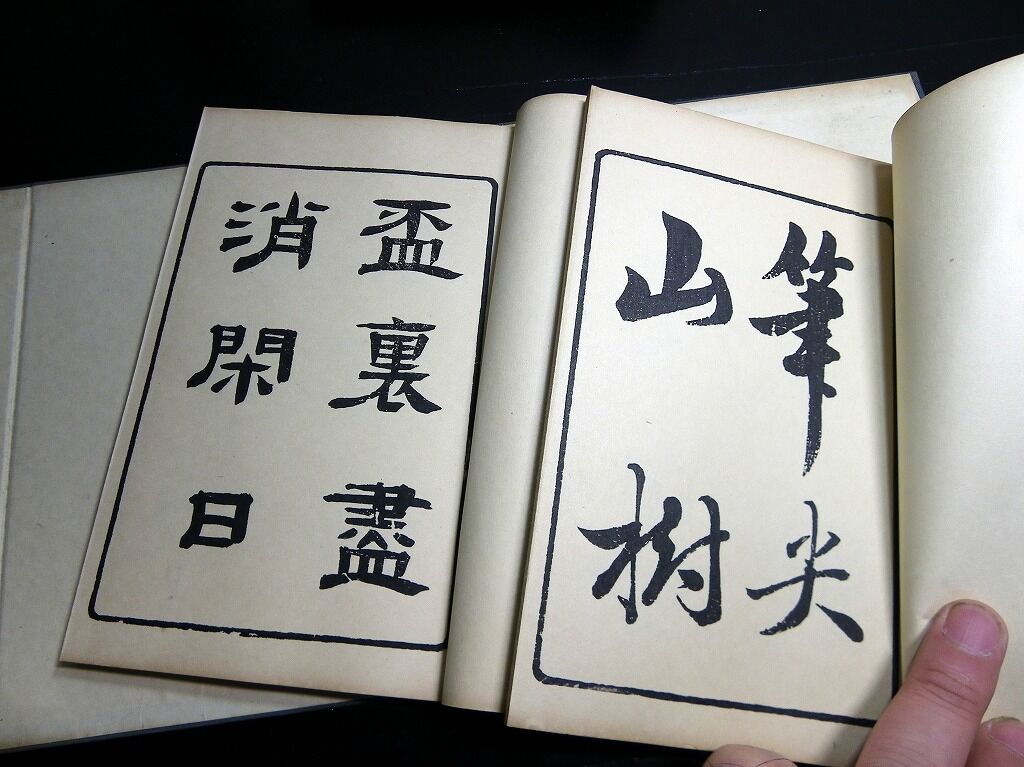 筆尖
山樹
盃裏盡
消閑日